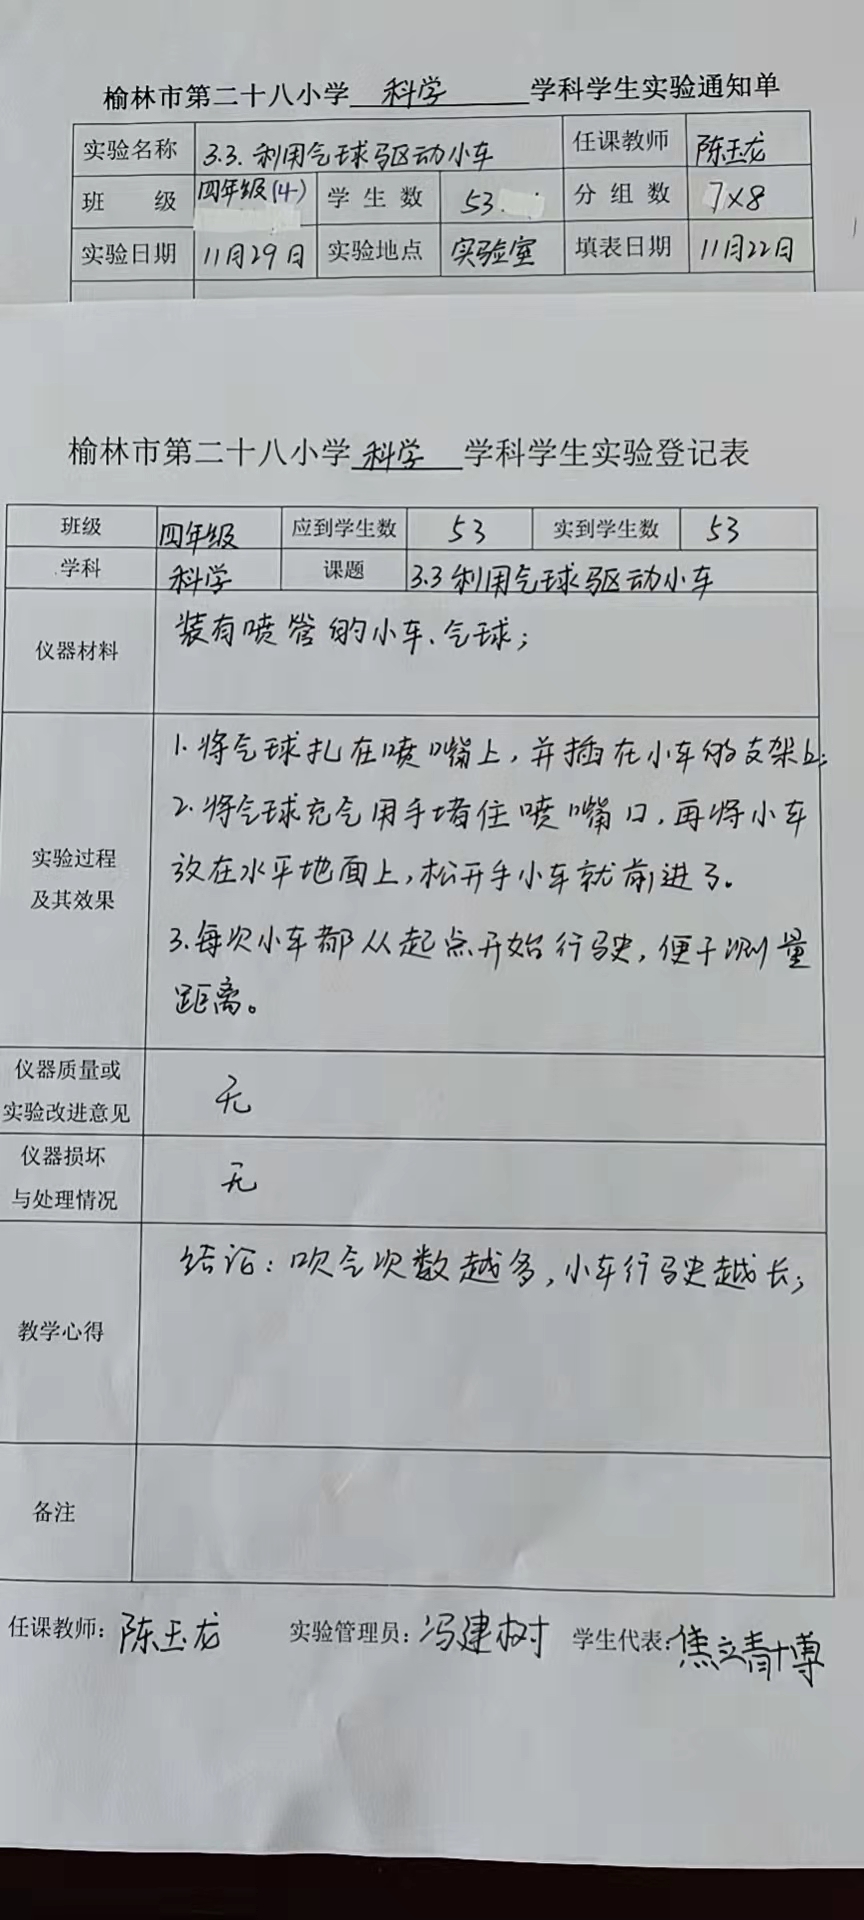 榆林市第二十八小学 科学 学科学生实验通知单
实验名称 3.3.利用气球驱动小车 任课教师 陈玉龙
班 级 四年级(4) 学生数 53 分组数 7×8
实验日期 11月29日 实验地点 实验室 填表日期 11月22日
榆林市第二十八小学 科学 学科学生实验登记表
班级 四年级 应到学生数 53 实到学生数 53
学科 科学 课题 3.3利用气球驱动小车
仪器材料 装有喷管的小车、气球;
实验过程
及其效果
1.将气球扎在喷嘴上,并插在小车的支架上;
2.将气球充气用手堵住喷嘴口,再将小车
放在水平地面上,松开手小车就前进了。
3.每次小车都从起点开始行驶,便于测量
距离。
仪器质量或
实验改进意见
无
仪器损坏
与处理情况
无
教学心得
结论:吹气次数越多,小车行驶越长;
备注
任课教师:陈玉龙 实验管理员:冯建树 学生代表:焦靖博